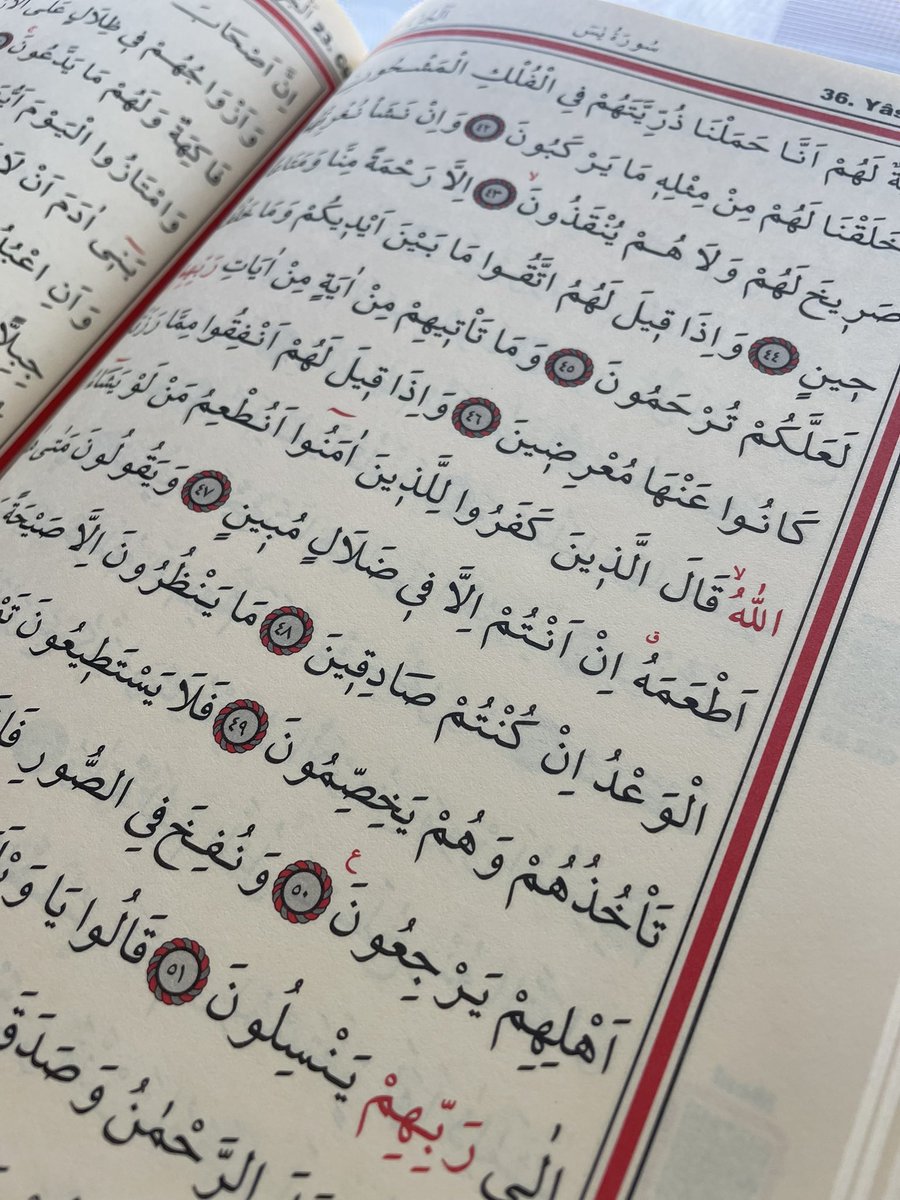 سُورَةُ يٰسٓ
36. Yâs
ةٌ لَهُمْ اَنَّا حَمَلْنَا ذُرِّيَّتَهُمْ فِي الْفُلْكِ الْمَشْحُو
خَلَقْنَا لَهُمْ مِنْ مِثْلِه۪ مَا يَرْكَبُونَ ﴿٤٢﴾ وَاِنْ نَشَأْ
صَر۪يخَ لَهُمْ وَلَا هُمْ يُنْقَذُونَۙ ﴿٤٣﴾ اِلَّا رَحْمَةً مِنَّا
ح۪ينٍ ﴿٤٤﴾ وَاِذَا ق۪يلَ لَهُمُ اتَّقُوا مَا بَيْنَ اَيْد۪يكُمْ وَمَا
لَعَلَّكُمْ تُرْحَمُونَ ﴿٤٥﴾ وَمَا تَأْت۪يهِمْ مِنْ اٰيَةٍ مِنْ اٰيَاتِ رَبِّهِمْ
كَانُوا عَنْهَا مُعْرِض۪ينَ ﴿٤٦﴾ وَاِذَا ق۪يلَ لَهُمْ اَنْفِقُوا مِمَّا
اللّٰهُۙ قَالَ الَّذ۪ينَ كَفَرُوا لِلَّذ۪ينَ اٰمَنُٓوا اَنُطْعِمُ مَنْ لَوْ يَشَٓاءُ
اَطْعَمَهُۗ اِنْ اَنْتُمْ اِلَّا ف۪ي ضَلَالٍ مُب۪ينٍ ﴿٤٧﴾ وَيَقُولُونَ مَتٰى
الْوَعْدُ اِنْ كُنْتُمْ صَادِق۪ينَ ﴿٤٨﴾ مَا يَنْظُرُونَ اِلَّا صَيْحَةً
تَأْخُذُهُمْ وَهُمْ يَخِصِّمُونَ ﴿٤٩﴾ فَلَا يَسْتَط۪يعُونَ
اَهْلِهِمْ يَرْجِعُونَ۟ ﴿٥٠﴾ وَنُفِخَ فِي الصُّورِ
اِلٰى رَبِّهِمْ يَنْسِلُونَ ﴿٥١﴾ قَالُوا يَا
الرَّحْمٰنُ وَصَدَقَ
اِنَّ اَصْحَابَ
وَاَزْوَاجُهُمْ ف۪ي ظِلَالٍ عَلَى
فَاكِهَةٌ وَلَهُمْ مَا يَدَّعُونَ
وَامْتَازُوا الْيَوْمَ
بَن۪ٓي اٰدَمَ اَنْ لَا
وَاَنِ
جِبِلًّا